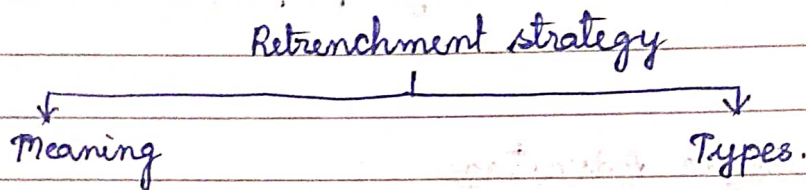 Retrenchment strategy
Meaning Types.